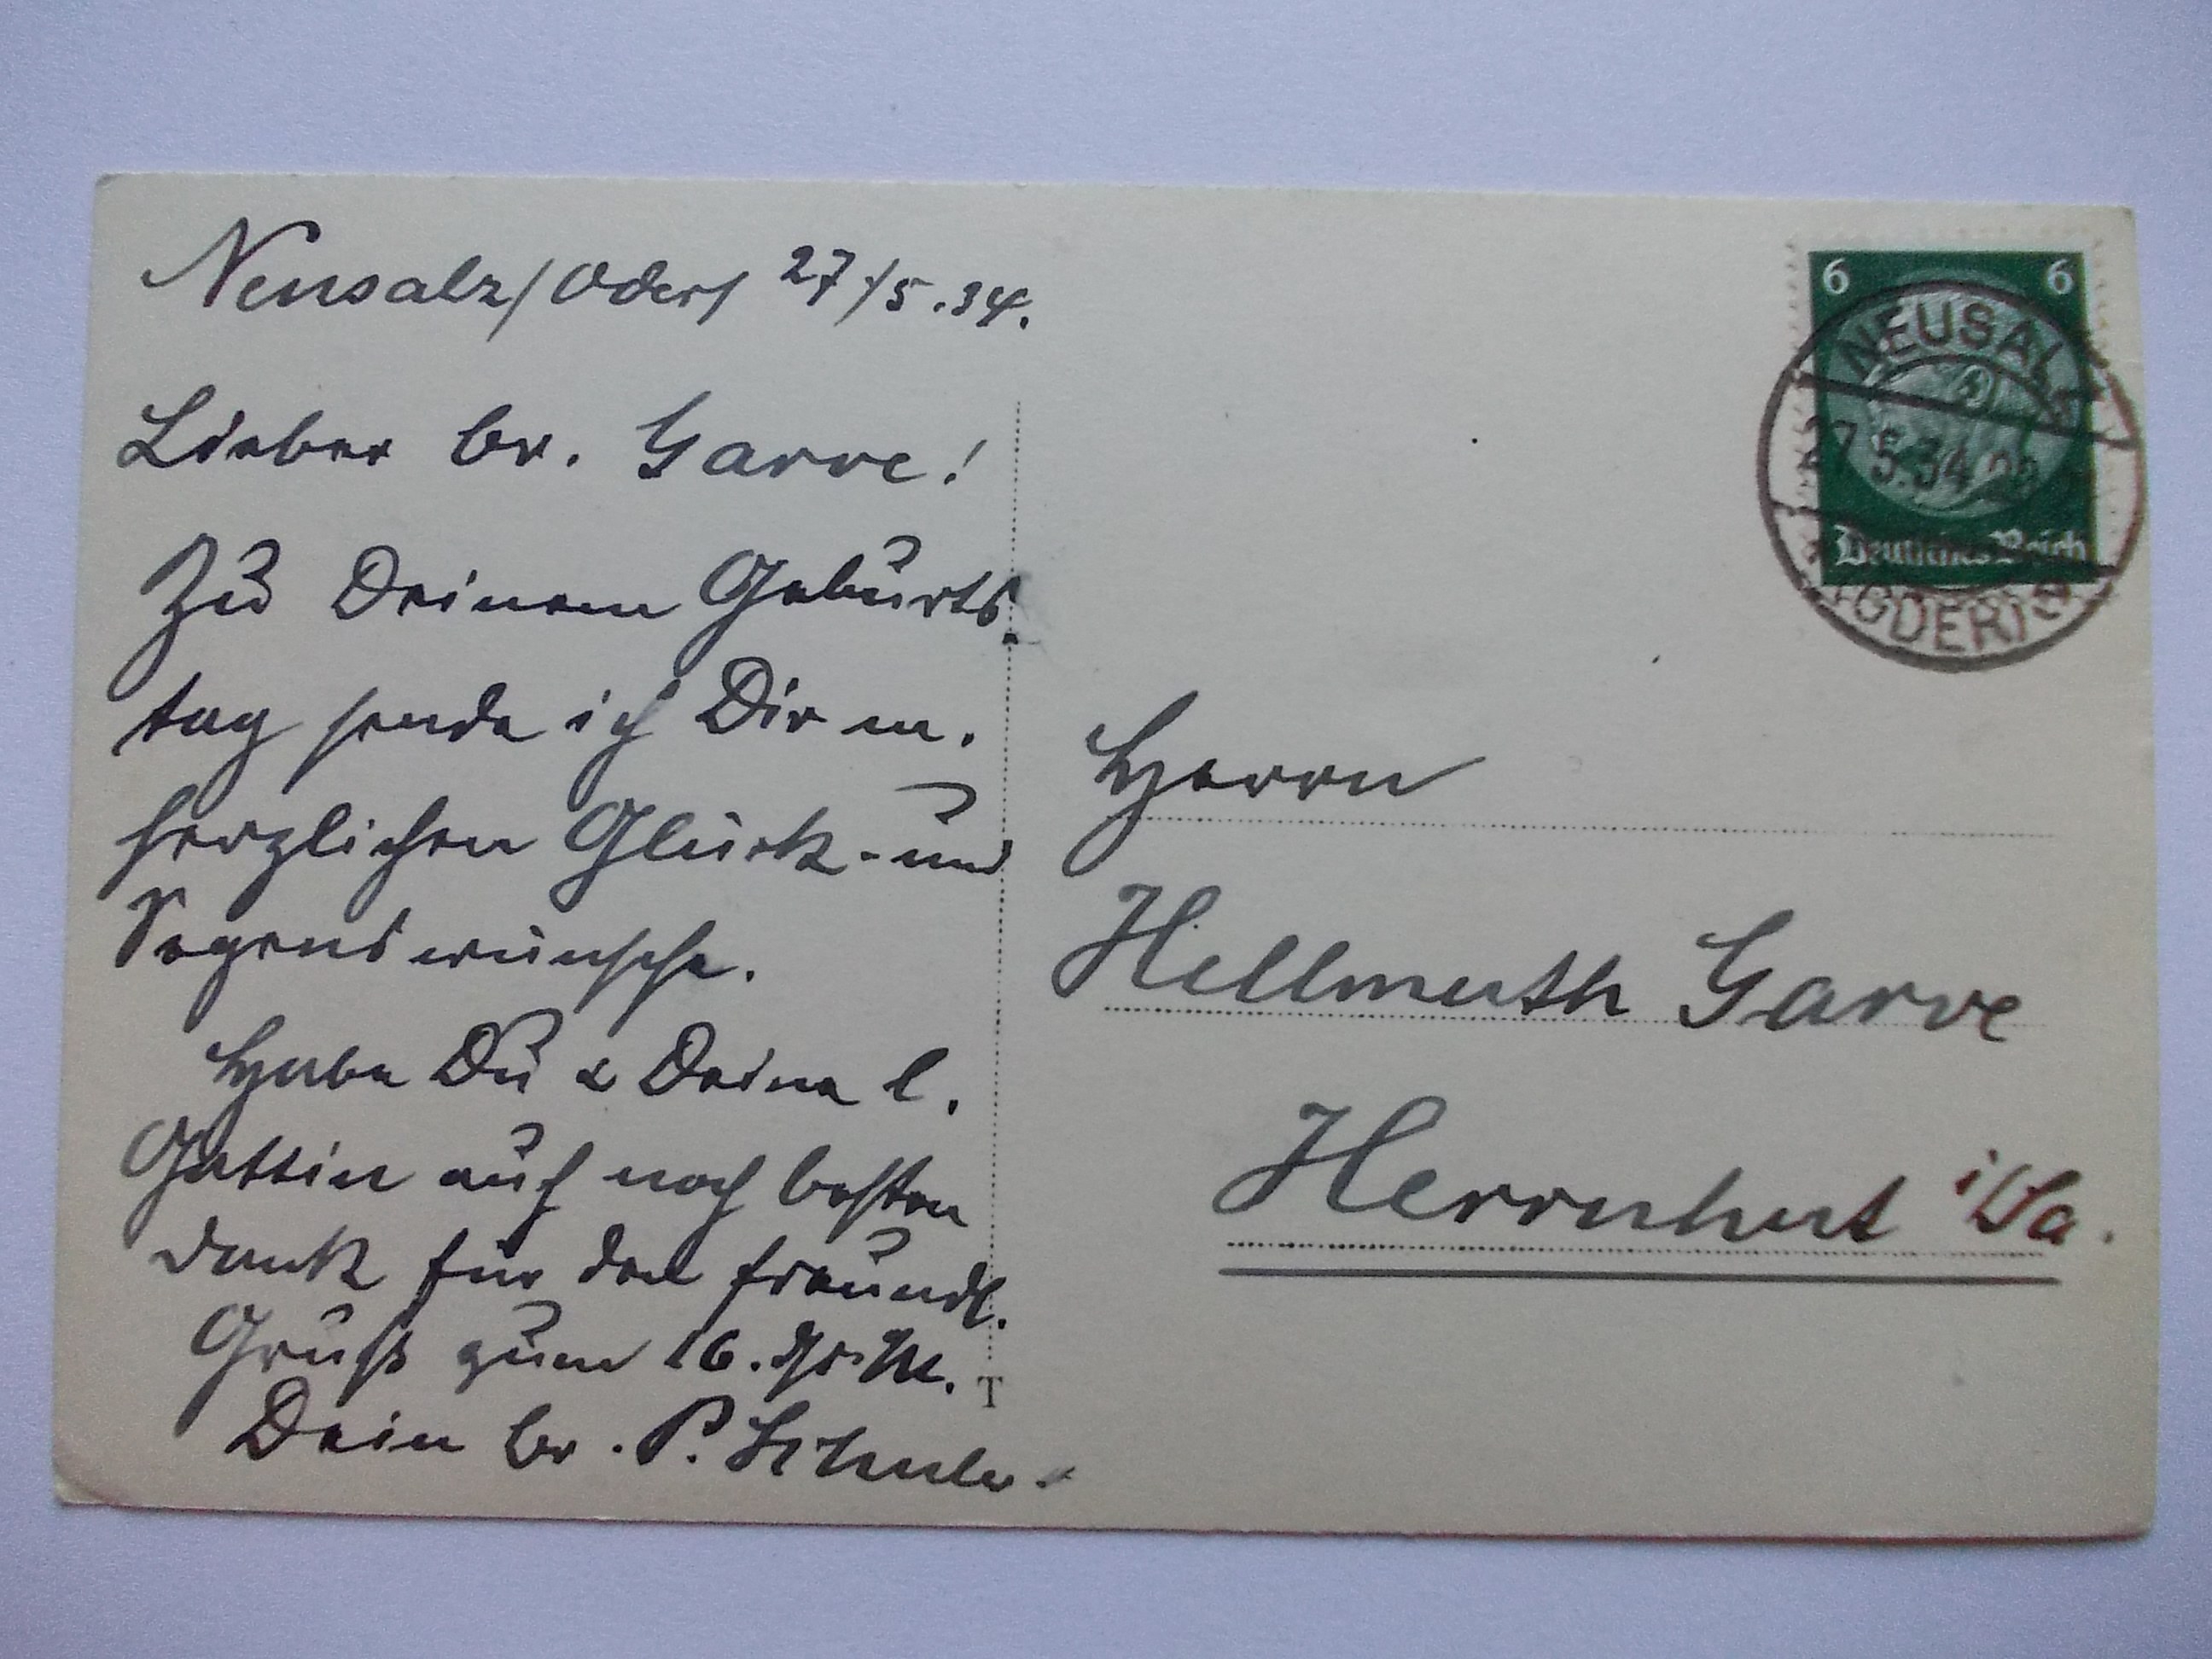 Neusalz/Oder, 27/5.34.
Lieber Br. Garve!
Zu Deinem Geburts-
tag sende ich Dir m.
herzlichen Glück- und
Segenswünsche.
Habe Du & Deine l.
Gattin auch noch besten
Dank für den freundl.
Gruß zum 16. ds. M.
Dein Br. P.
T
6 6
NEUSALZ
27.5.34
(ODER)
Deutsches Reich
Herrn
Hellmuth Garve
Herrnhut i/Sa.